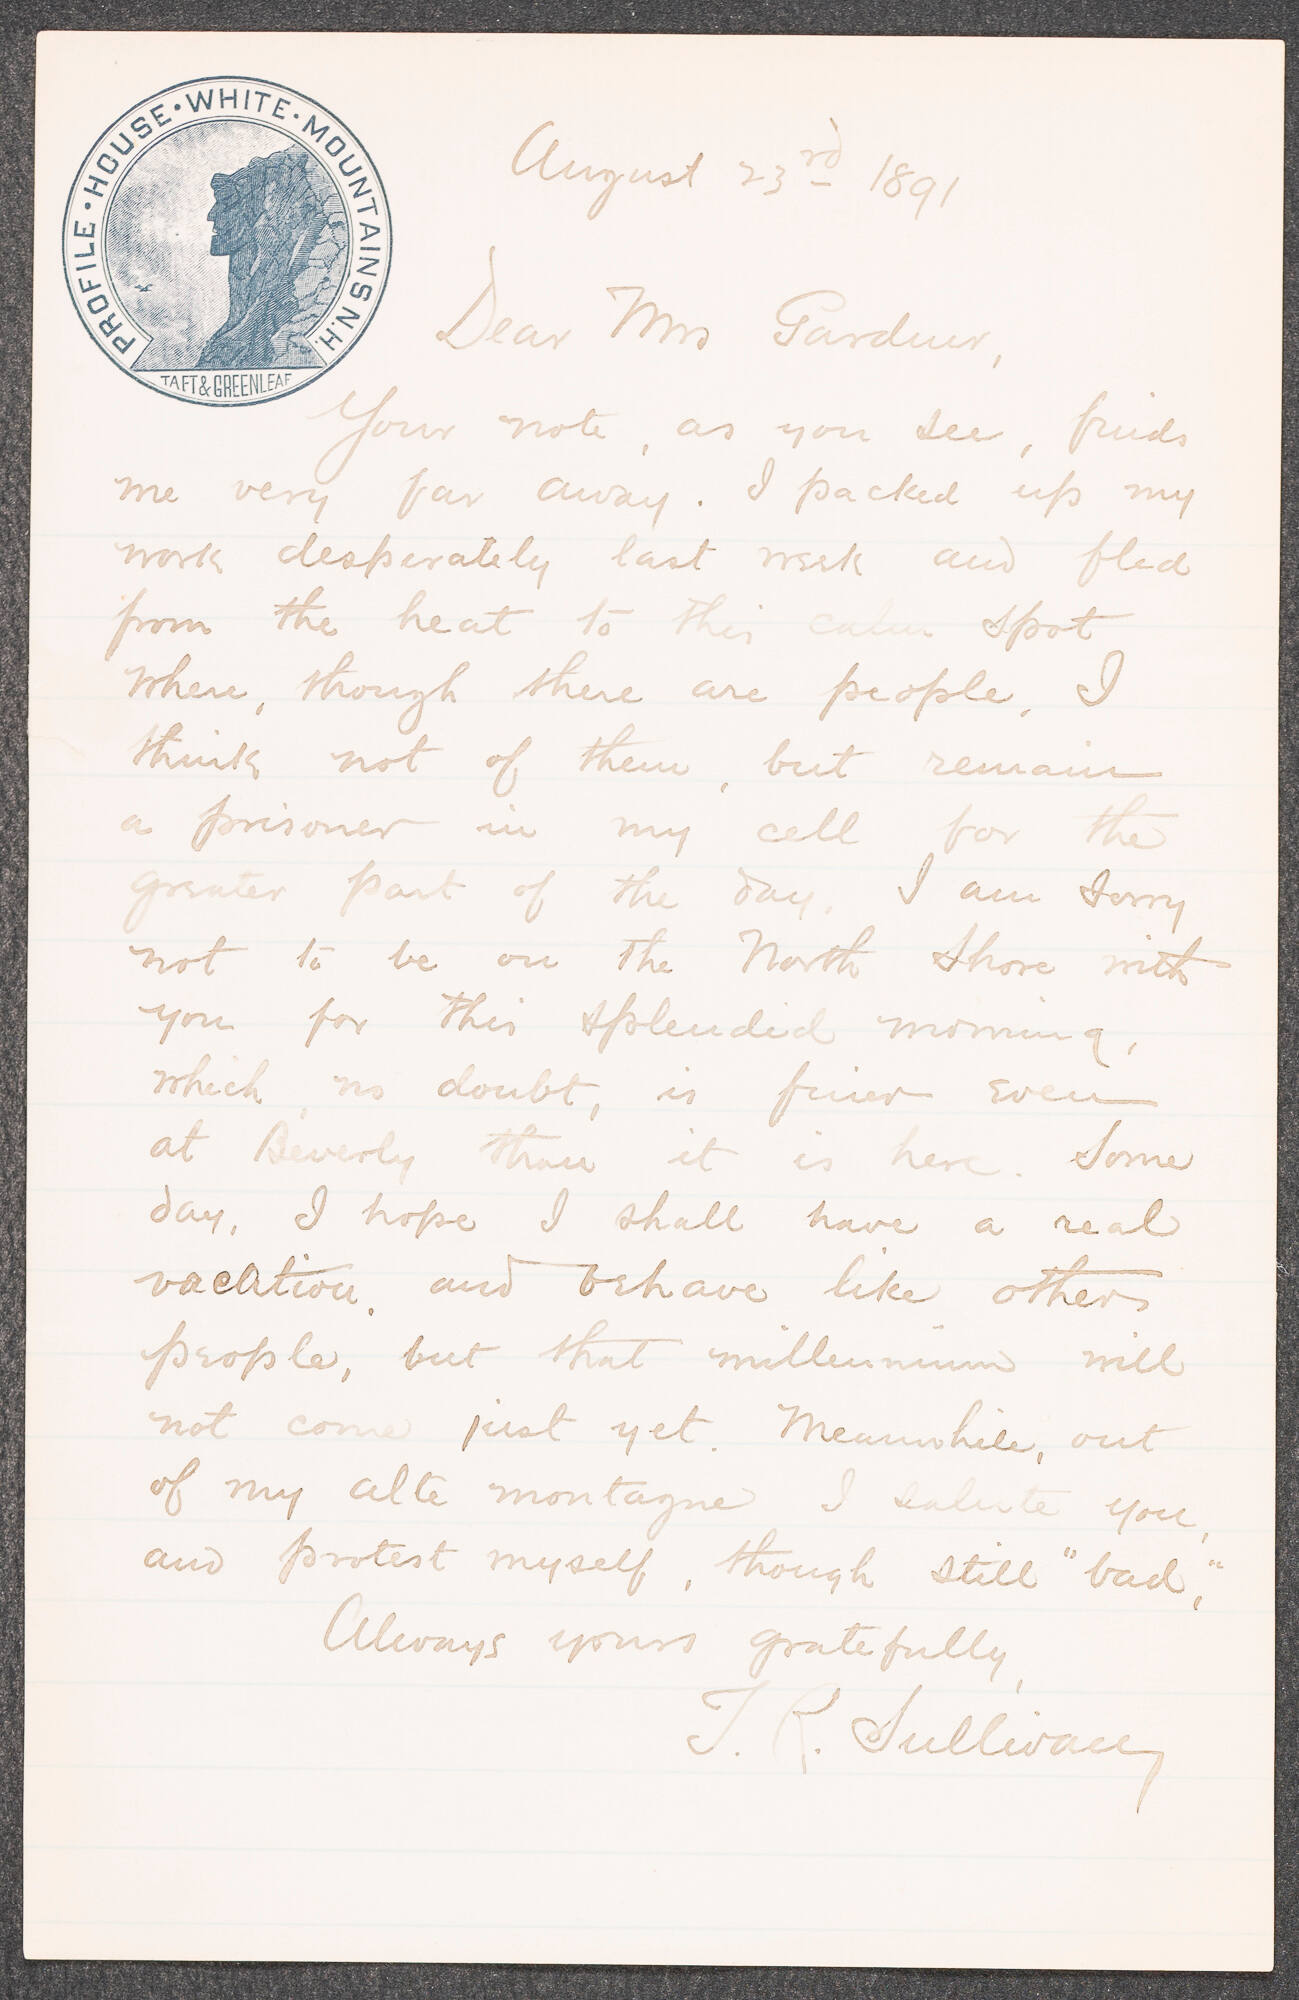 PROFILE · HOUSE · WHITE · MOUNTAINS N.H.
TAFT & GREENLEAF
August 23rd 1891
Dear Mrs Gardner,
Your note, as you see, finds
me very far away. I packed up my
work desperately last week and fled
from the heat to this calm spot
where, though there are people, I
think not of them, but remain
a prisoner in my cell for the
greater part of the day. I am sorry
not to be on the North Shore with
you for this splendid morning,
which, no doubt, is finer even
at Beverly than it is here. Some
day, I hope I shall have a real
vacation, and behave like other
people, but that millennium will
not come just yet. Meanwhile, out
of my alte montagne I salute you,
and protest myself, though still "bad,"
Always yours gratefully,
T. R. Sullivan